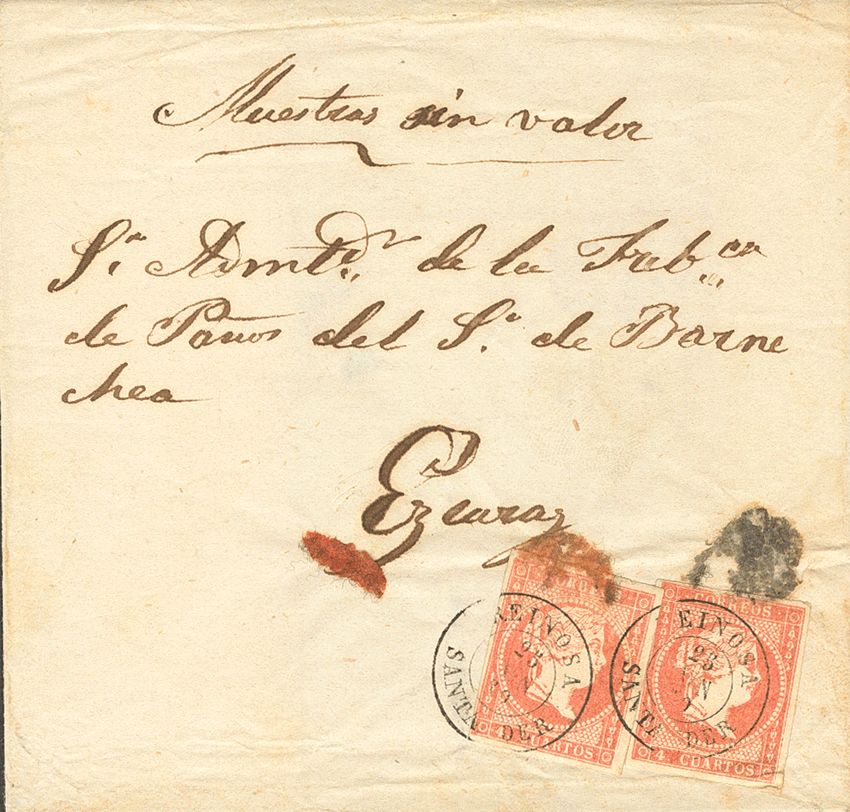 Muestras sin valor
Sr. Admtdr. de la Fabca
de Paños del Sr. de Barne
chea
Ezcaray
CORREOS CORREOS
REINOSA EINOSA
25 23
SANTANDER SANTANDER
4 CUARTOS 4 CUARTOS